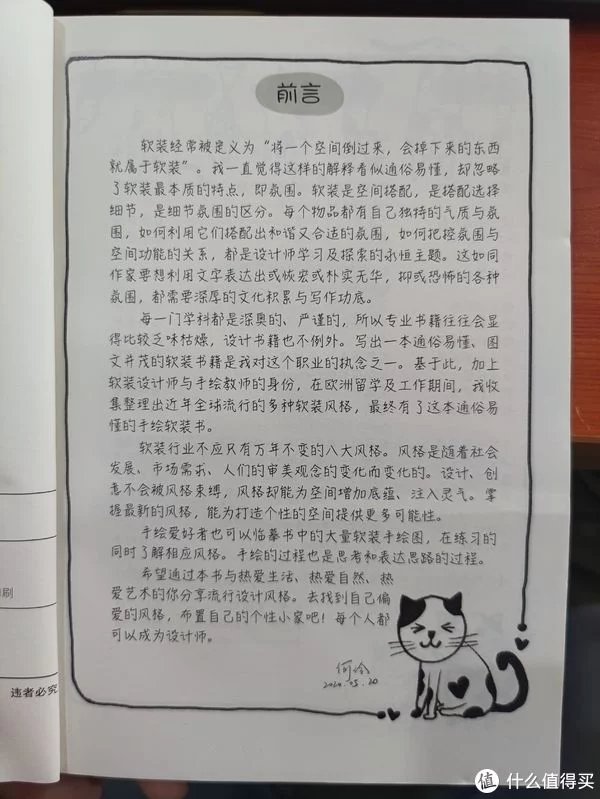 前言
软装经常被定义为“将一个空间倒过来，会掉下来的东西
就属于软装”。我一直觉得这样的解释看似通俗易懂，却忽略
了软装最本质的特点，即氛围。软装是空间搭配，是搭配选择
细节，是细节氛围的区分。每个物品都有自己独特的气质与氛
围，如何利用它们搭配出和谐又合适的氛围，如何把控氛围与
空间功能的关系，都是设计师学习及探索的永恒主题。这如同
作家要想利用文字表达出或恢宏或朴实无华，抑或恐怖的各种
氛围，都需要深厚的文化积累与写作功底。
每一门学科都是深奥的、严谨的，所以专业书籍往往会显
得比较乏味枯燥，设计书籍也不例外。写出一本通俗易懂、图
文并茂的软装书籍是我对这个职业的执念之一。基于此，加上
软装设计师与手绘教师的身份，在欧洲留学及工作期间，我收
集整理出近年全球流行的多种软装风格，最终有了这本通俗易
懂的手绘软装书。
软装行业不应只有万年不变的八大风格。风格是随着社会
发展、市场需求、人们的审美观念的变化而变化的。设计、创
意不会被风格束缚，风格却能为空间增加底蕴、注入灵气。掌
握最新的风格，能为打造个性的空间提供更多可能性。
手绘爱好者也可以临摹书中的大量软装手绘图，在练习的
同时了解相应风格。手绘的过程也是思考和表达思路的过程。
希望通过本书与热爱生活、热爱自然、热
爱艺术的你分享流行设计风格。去找到自己偏
爱的风格，布置自己的个性小家吧！每个人都
可以成为设计师。
2020.05.20
刷
违者必究
值 什么值得买